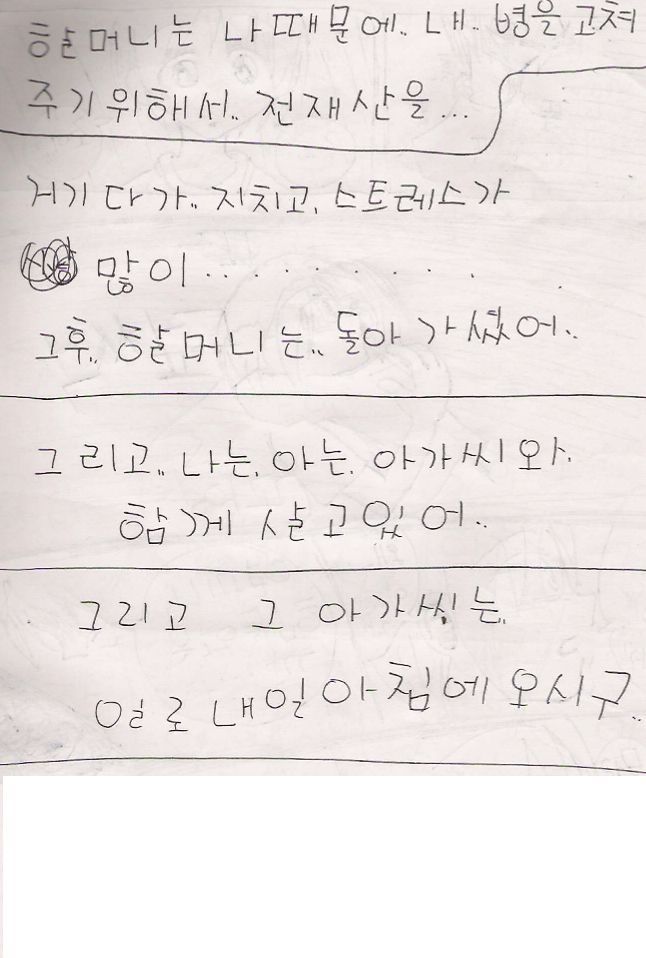 할머니는 나때문에.. 내.. 병을 고쳐
주기위해서.. 전재산을...
거기다가.. 지치고, 스트레스가
많이..........
그후.. 할머니는.. 돌아가셨어..
그리고.. 나는, 아는, 아가씨와,
함께 살고있어..
그리고 그 아가씨는,
일로 내일아침에 오시구..